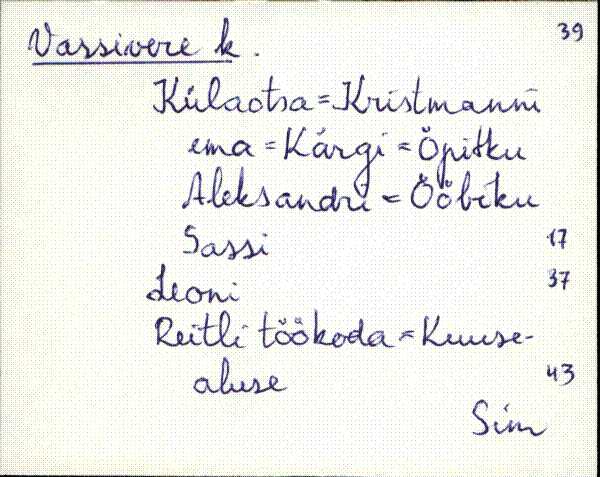 Vassivere k. 39
Külaotsa = Kristmanni
ema = Kärgi = Öpitku
Aleksandri = Ööbiku
Sassi 17
Leoni 37
Reitli töökoda = Kuuse-
aluse 43
Sim